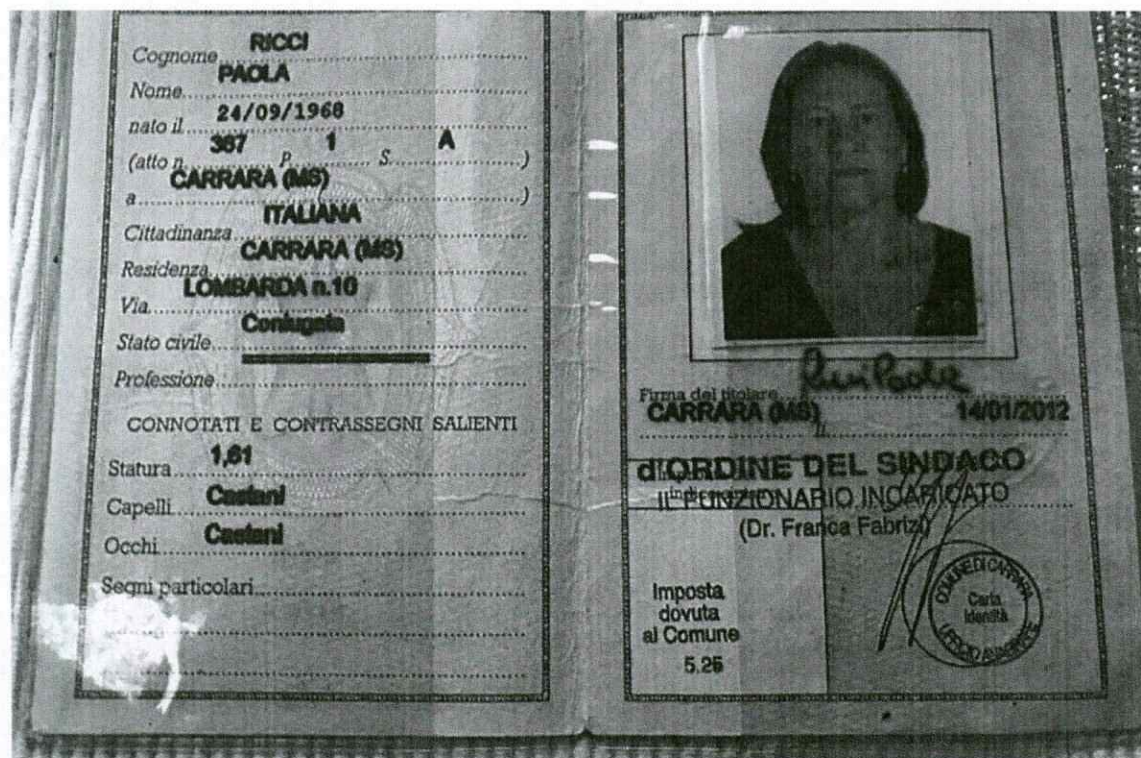 Cognome RICCI
Nome PAOLA
nato il 24/09/1968
(atto n. 367 P. 1 S. A )
a CARRARA (MS) )
Cittadinanza ITALIANA
Residenza CARRARA (MS)
Via LOMBARDA n.10
Stato civile Coniugata
Professione
CONNOTATI E CONTRASSEGNI SALIENTI
Statura 1,61
Capelli Castani
Occhi Castani
Segni particolari
Firma del titolare Ricci Paola
CARRARA (MS), li 14/01/2012
d'ORDINE DEL SINDACO
IL FUNZIONARIO INCARICATO
(Dr. Franca Fabrizi)
Imposta
dovuta
al Comune
5.26
COMUNE DI CARRARA
Carta
Identità
UFFICIO ANAGRAFE